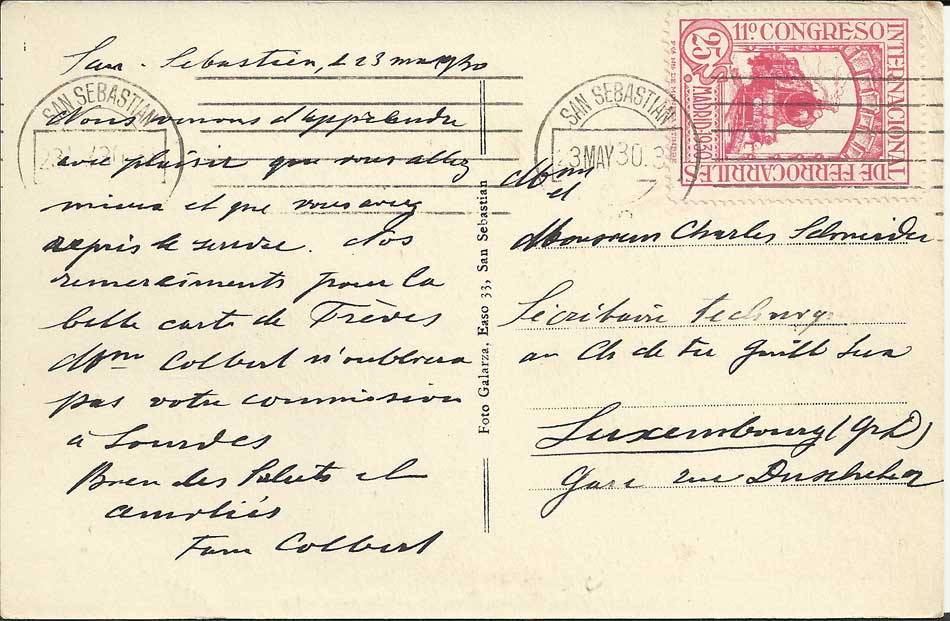 San-Sebastien, le 23 mai 30
Nous venons d'apprendre
avec plaisir que vous allez
mieux et que vous avez
repris le service. Nos
remerciments pour la
belle carte de Trèves
Mme Colbert n'oubliera
pas votre commission
à Lourdes
Bien des Saluts et
amitiés
Fam Colbert
Foto Galarza, Easo 33, San Sebastian
SAN SEBASTIAN
SAN SEBASTIAN
23 MAY 30
11º CONGRESO
INTERNACIONAL
DE FERROCARRILES
MADRID 1930
25
et
Monsieur Charles Schneider
Sécrétaire techniq
au Ch de fer Guill Lux
Luxembourg (GrD)
Gare rue